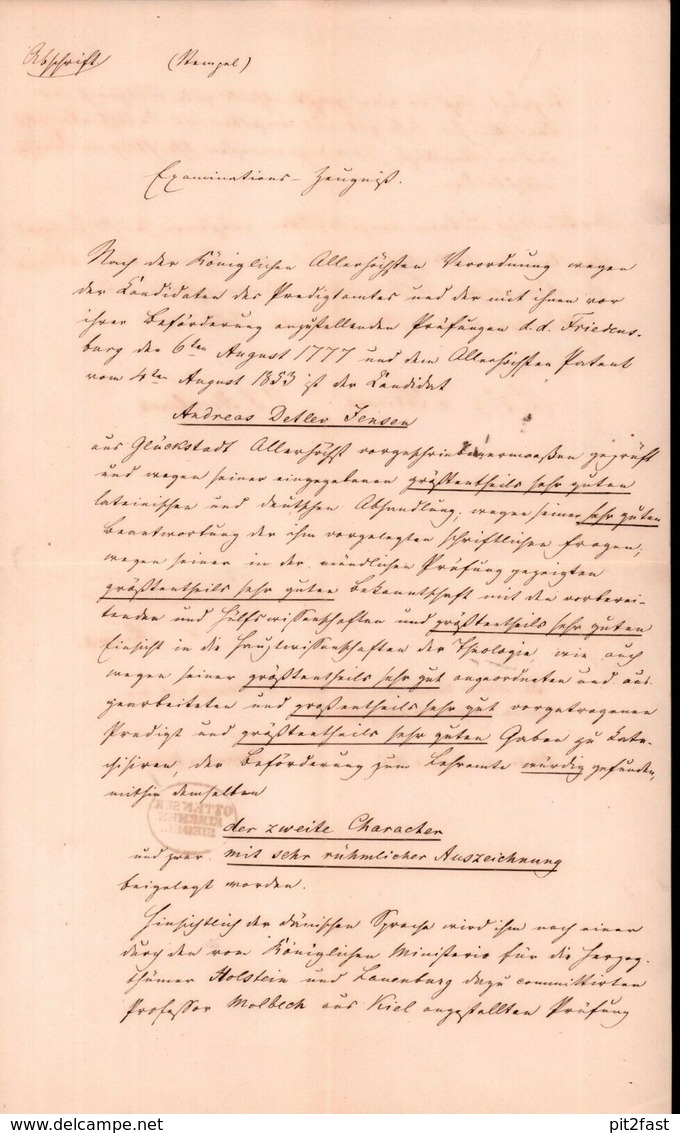 Abschrift (Stempel)
Examinations-Zeugniß.
Nach der Königlichen Allerhöchsten Verordnung wegen
der Candidaten des Predigtamtes und der mit ihnen vor
ihrer Beförderung anzustellenden Prüfungen d. d. Friedens-
burg den 6ten August 1777 und dem Allerhöchsten Patent
vom 4ten August 1853 ist der Candidat
Andreas Detlev Jensen
aus Glückstadt Allerhöchst vorgeschriebenermaaßen geprüft
und wegen seiner eingegebenen größtentheils sehr guten
lateinischen und deutschen Abhandlung; wegen seiner sehr guten
Beantwortung der ihm vorgelegten schriftlichen Fragen;
wegen seiner in der mündlichen Prüfung gezeigten
größtentheils sehr guten Bekanntschaft mit den vorberei-
tenden und Hülfswissenschaften und größtentheils sehr guten
Einsicht in die Hauptwissenschaften der Theologie, wie auch
wegen seiner größtentheils sehr gut angeordneten und aus-
gearbeiteten und großentheils sehr gut vorgetragenen
Predigt und größtentheils sehr guten Gaben zu kate-
chisiren, der Beförderung zum Lehramte würdig gefunden,
mithin demselben
OTTENSER
KIRCHEN
SIEGEL
der zweite Character
und zwar mit sehr rühmlicher Auszeichnung
beigelegt worden.
Hinsichtlich der dänischen Sprache wird ihm nach einer
durch den vom Königlichen Ministerio für die Herzog-
thümer Holstein und Lauenburg dazu committirten
Professor Molbech aus Kiel angestellten Prüfung
pit2fast